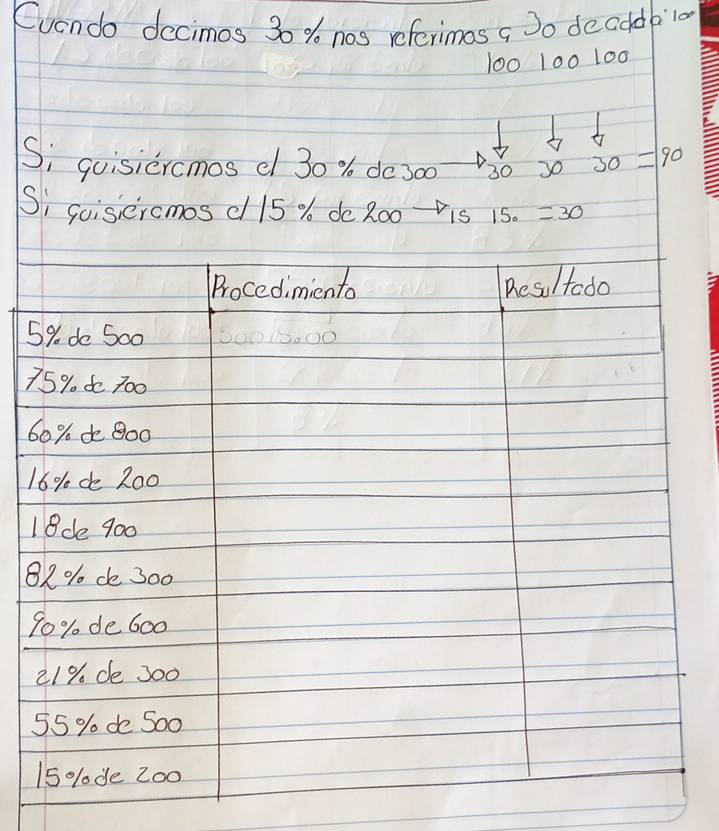 Cuando decimos 30% nos referimos a 30 de cada 100
100 100 100
Si quisiéramos el 30% de 300 → 30 30 30 = 90
Si quisiéramos el 15% de 200 → 15 15. = 30
Procedimiento Resultado
5% de 500 500 5.00
75% de 700
60% de 800
16% de 200
18 de 900
82% de 300
90% de 600
21% de 300
55% de 500
15% de 200